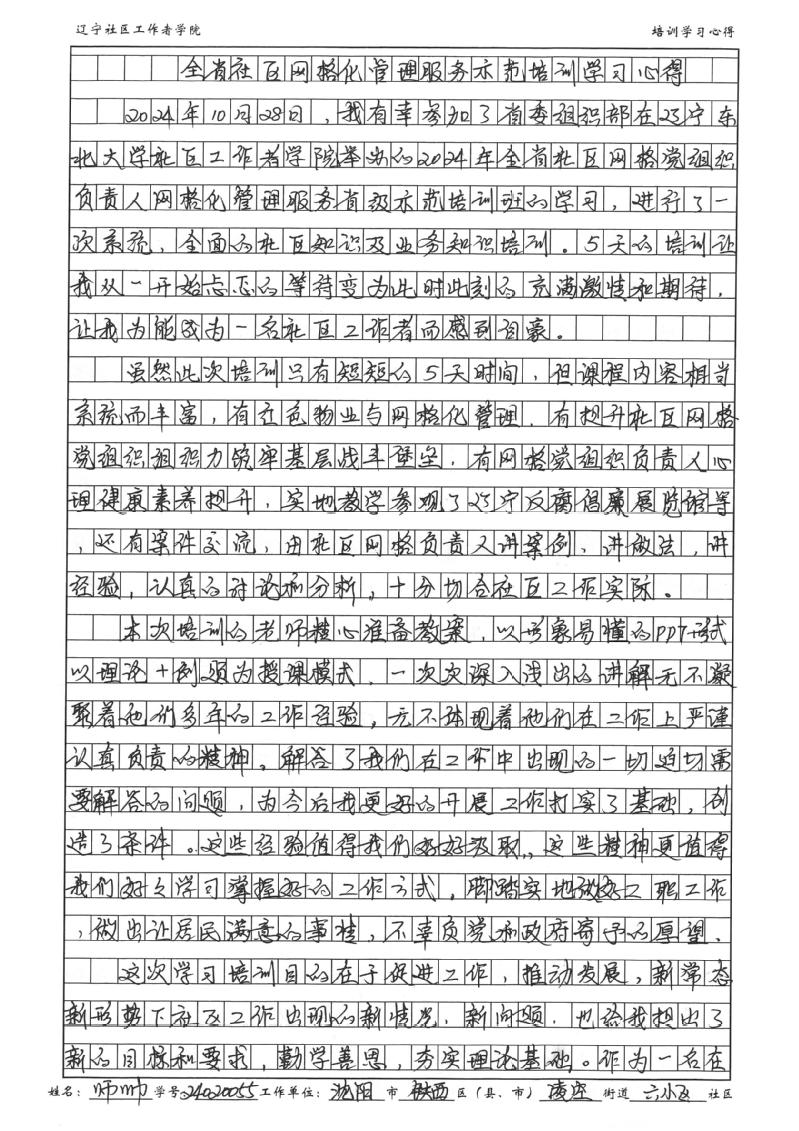 辽宁社区工作者学院 培训学习心得
全省社区网格化管理服务示范培训学习心得
2024年10月28日，我有幸参加了省委组织部在辽宁东
北大学社区工作者学院举办的2024年全省社区网格党组织
负责人网格化管理服务省级示范培训班的学习，进行了一
次系统，全面的社区知识及业务知识培训。5天的培训让
我从一开始忐忑的等待变为此时此刻的充满激情和期待，
让我为能成为一名社区工作者而感到自豪。
虽然此次培训只有短短的5天时间，但课程内容相当
系统而丰富，有红色物业与网格化管理，有提升社区网格
党组织组织力筑牢基层战斗堡垒，有网格党组织负责人心
理健康素养提升，实地教学参观了辽宁反腐倡廉展览馆等
，还有案件交流，由社区网格负责人讲案例，讲做法，讲
经验，认真的讨论和分析，十分切合社区工作实际。
本次培训的老师精心准备教案，以形象易懂的PPT形式
以理论+例题为授课模式，一次次深入浅出的讲解无不凝
聚着他们多年的工作经验，无不体现着他们在工作上严谨
认真负责的精神。解答了我们在工作中出现的一切迫切需
要解答的问题，为今后我更好的开展工作打实了基础，创
造了条件。这些经验值得我们好好汲取，这些精神更值得
我们好好学习掌握好的工作方式，脚踏实地做好工职工作
，做出让居民满意的事情，不辜负党和政府寄予的厚望。
这次学习培训目的在于促进工作，推动发展，新常态
新形势下社区工作出现的新情况，新问题，也给我提出了
新的目标和要求，勤学善思，夯实理论基础。作为一名在
姓名：师帅 学号：24020055 工作单位：沈阳 市 铁西 区（县、市） 凌空 街道 六小区 社区